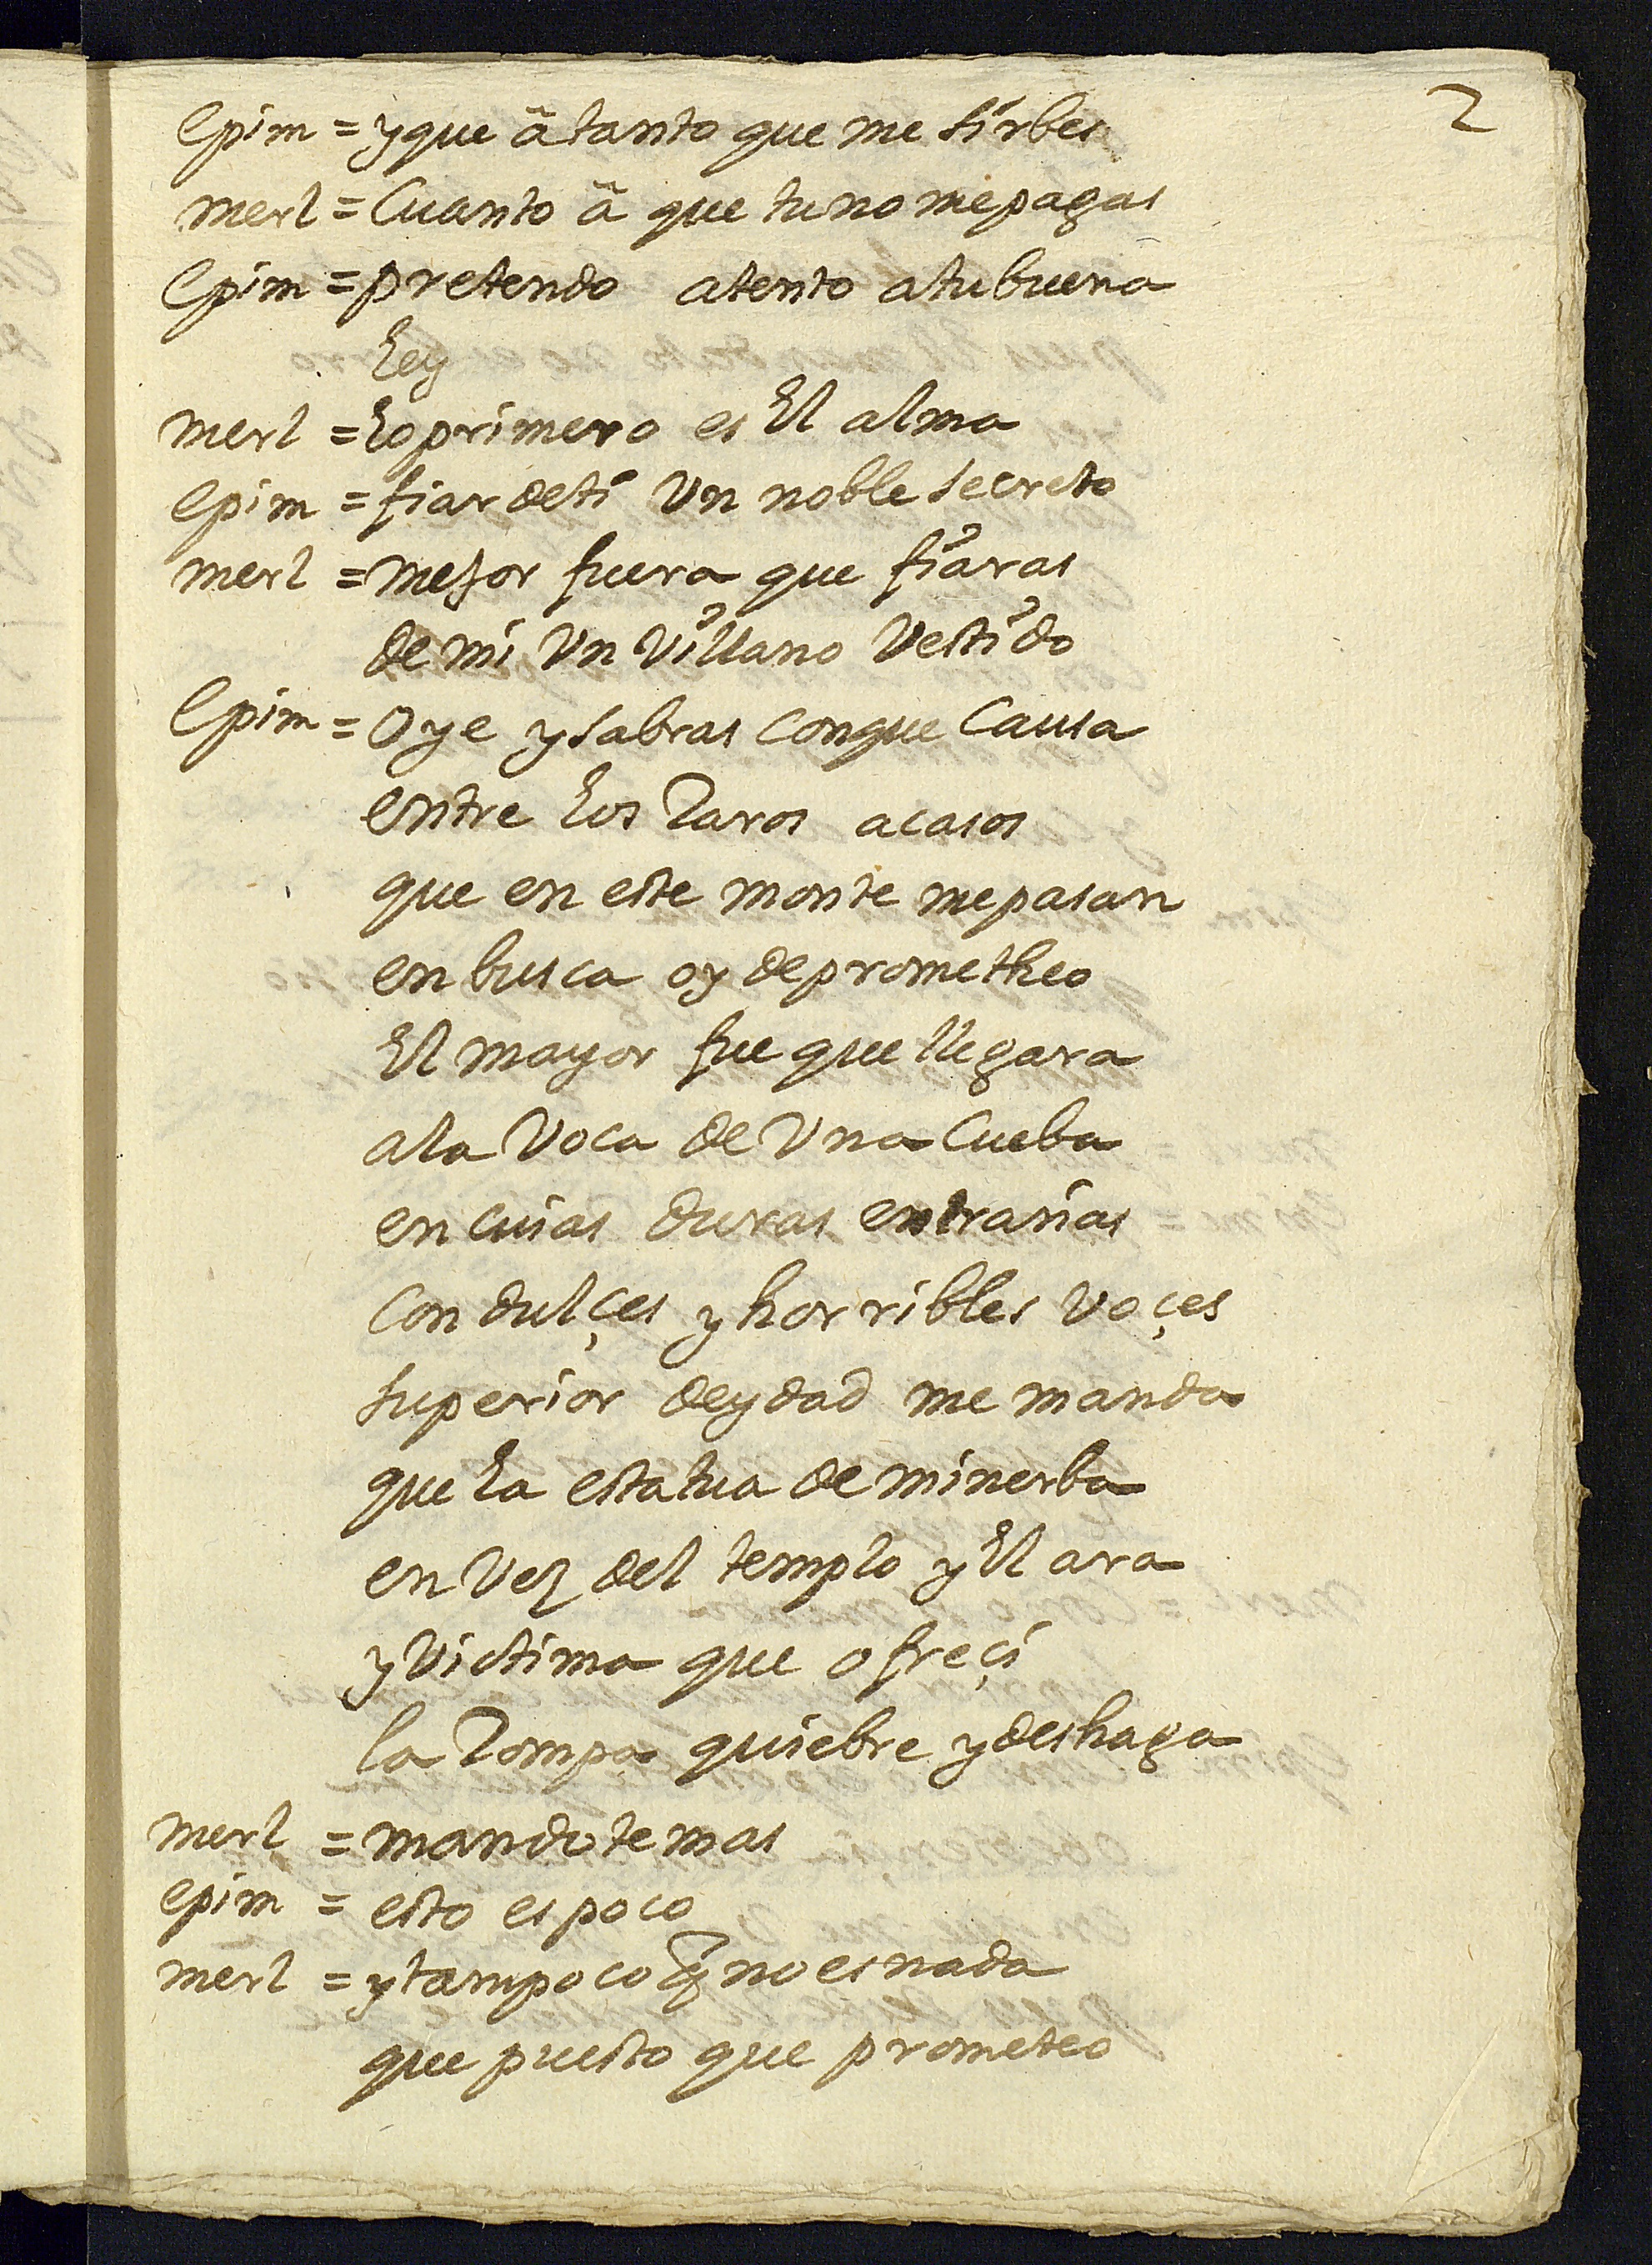 2
epim = y que â tanto que me sirbes
merl = Cuanto â que tu no me pagas
epim = pretendo atento a tu buena
Ley
merl = Lo primero es El alma
epim = fiar de ti Un noble secreto
merl = mejor fuera que fiaras
de mi Un Villano Vestido
epim = Oye y sabras con que Causa
entre los Raros acasos
que en este monte me pasan
en busca oy de prometheo
El mayor fue que llegara
a la Voca de Una Cueba
en cuias duras entrañas
Con dulçes y horribles voçes
superior deydad me manda
que la estatua de minerba
en Vez del templo y El ara
y Victima que ofreçi
la Rompa quiebre y deshaga
merl = mandote mas
epim = esto es poco
merl = y tampoco q̃ no es nada
que puesto que prometeo